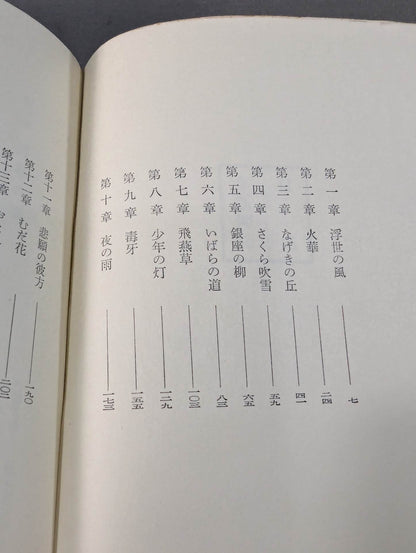 第一章 浮世の風 七
第二章 火華 二四
第三章 なげきの丘 四一
第四章 さくら吹雪 五九
第五章 銀座の柳 六五
第六章 いばらの道 八三
第七章 飛燕草 一〇三
第八章 少年の灯 一二九
第九章 毒牙 一五五
第十章 夜の雨 一七三
第十一章 悲願の彼方 一九〇
第十二章 むだ花 二〇二
第十三章